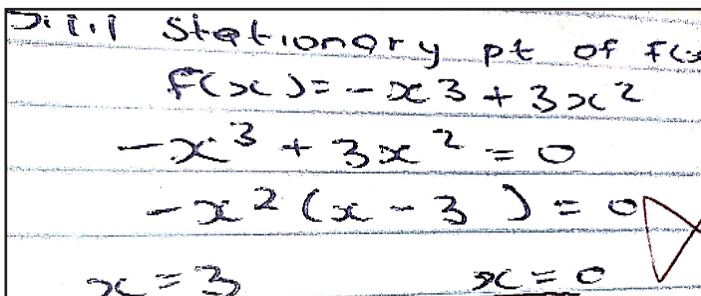 5.1.1 Stationary pt of f(x
f(x) = -x3 + 3x²
-x³ + 3x² = 0
-x²(x - 3) = 0
x = 3 x = 0